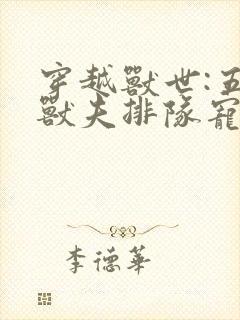 穿越獸世:五
獸夫排隊寵
李德華